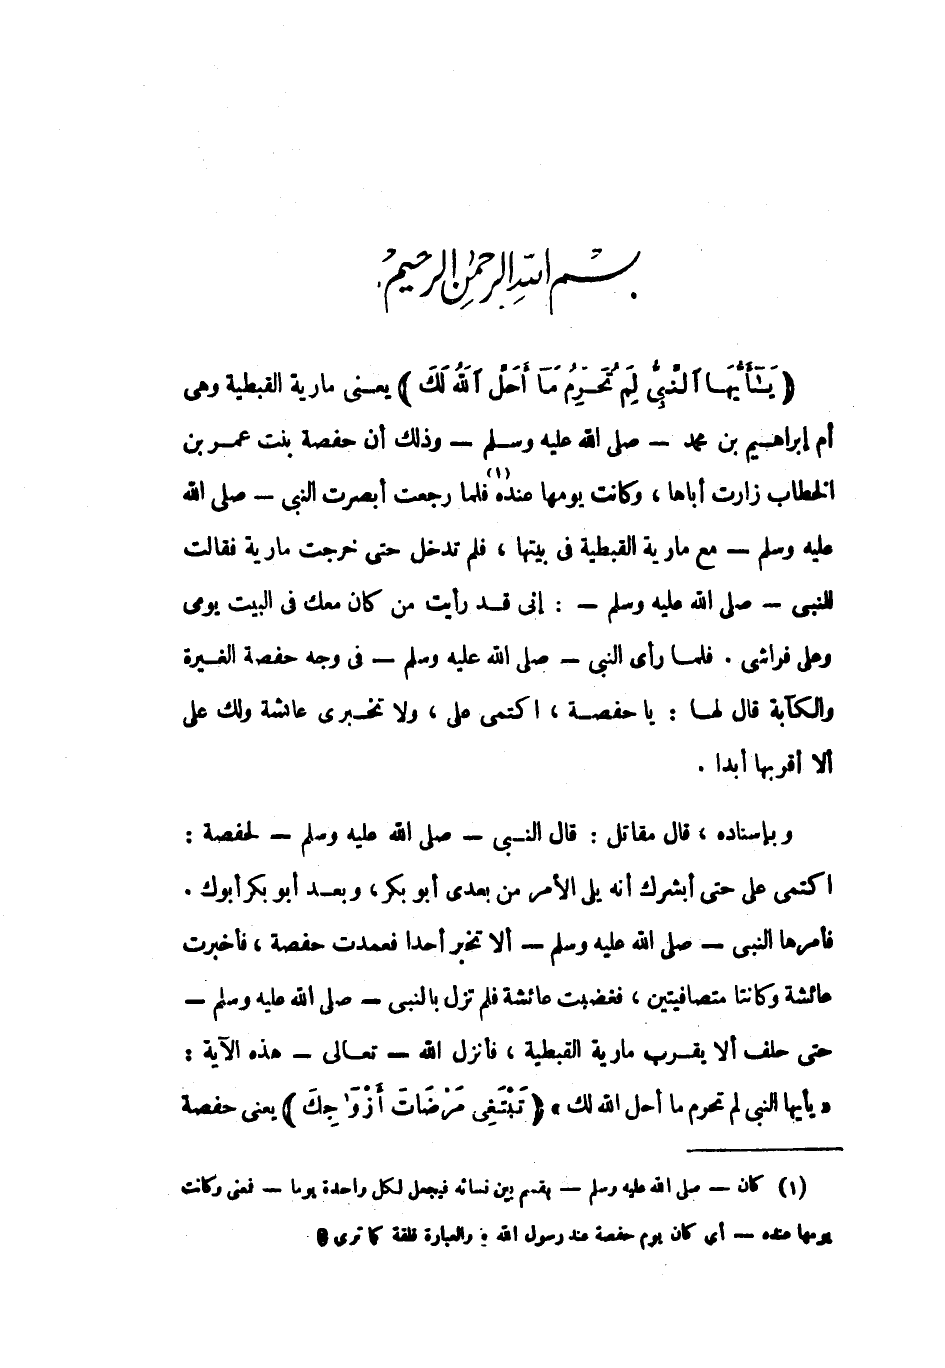 بسم الله الرحمن الرحيم
﴿ يَـٰٓأَيُّهَا ٱلنَّبِىُّ لِمَ تُحَرِّمُ مَآ أَحَلَّ ٱللَّهُ لَكَ ﴾ يعنى مارية القبطية وهى
أم إبراهيم بن محمد — صلى الله عليه وسلم — وذلك أن حفصة بنت عمر بن
الخطاب زارت أباها ، وكانت يومها عنده (١) فلما رجعت أبصرت النبى — صلى الله
عليه وسلم — مع مارية القبطية فى بيتها ، فلم تدخل حتى خرجت مارية فقالت
للنبى — صلى الله عليه وسلم — : إنى قد رأيت من كان معك فى البيت يومى
وعلى فراشى . فلما رأى النبى — صلى الله عليه وسلم — فى وجه حفصة الغيرة
والكآبة قال لها : يا حفصة ، اكتمى على ، ولا تخبرى عائشة ولك على
ألا أقربها أبدا .
وبإسناده ، قال مقاتل : قال النبى — صلى الله عليه وسلم — لحفصة :
اكتمى على حتى أبشرك أنه يلى الأمر من بعدى أبو بكر ، وبعد أبو بكر أبوك .
فأمرها النبى — صلى الله عليه وسلم — ألا تخبر أحدا فعمدت حفصة ، فأخبرت
عائشة وكانتا متصافيتين ، فغضبت عائشة فلم تزل بالنبى — صلى الله عليه وسلم —
حتى حلف ألا يقرب مارية القبطية ، فأنزل الله — تعالى — هذه الآية :
« يأيها النبى لم تحرم ما أحل الله لك » ﴿ تَبْتَغِى مَرْضَاتَ أَزْوَٰجِكَ ﴾ يعنى حفصة
(١) كان — صلى الله عليه وسلم — يقسم بين نسائه فيجعل لكل واحدة يوما — فمعنى وكانت
يومها عنده — أى كان يوم حفصة عند رسول الله ؛ والعبارة قلقة كما ترى